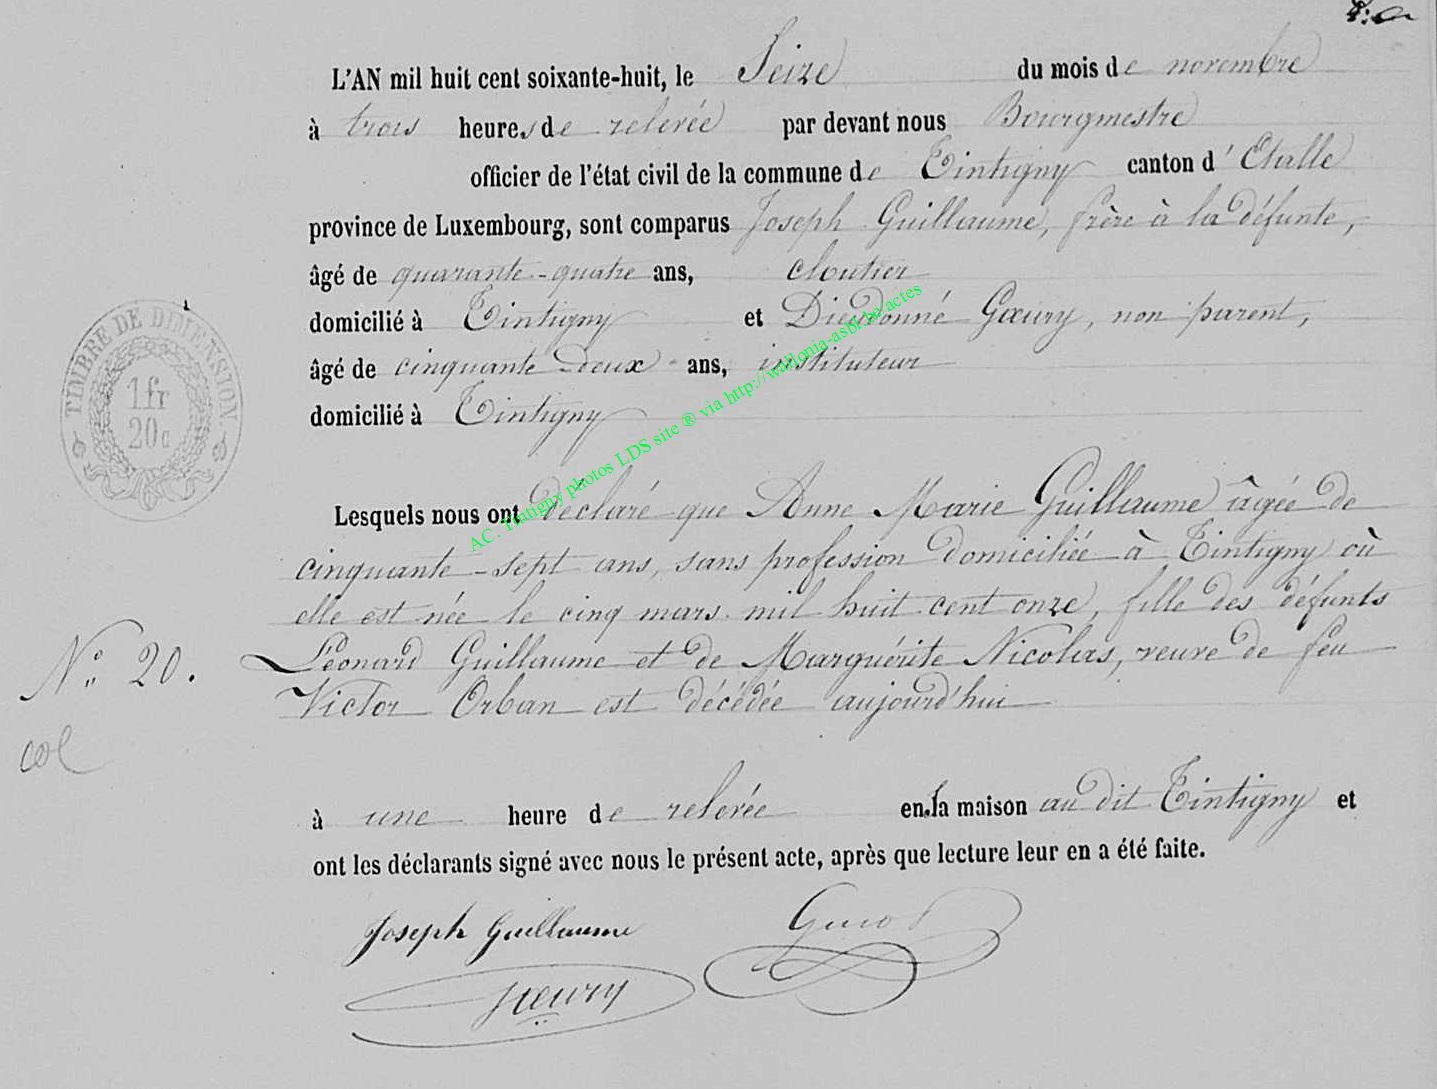 L'AN mil huit cent soixante-huit, le Seize du mois de novembre
à trois heures de relevée par devant nous Bourgmestre
officier de l'état civil de la commune de Tintigny canton d'Etalle
province de Luxembourg, sont comparus Joseph Guillaume, frère à la défunte,
âgé de quarante-quatre ans, cloutier
domicilié à Tintigny et Dieudonné Gœury, non parent,
âgé de cinquante-deux ans, instituteur
domicilié à Tintigny
TIMBRE DE DIMENSION.
1 fr
20 c
Lesquels nous ont déclaré que Anne Marie Guillaume âgée de
cinquante-sept ans, sans profession domiciliée à Tintigny où
elle est née le cinq mars mil huit cent onze, fille des défunts
N° 20. Léonard Guillaume et de Marguérite Nicolas, veuve de feu
Victor Orban est décédée aujourd'hui
col
à une heure de relevée en la maison au dit Tintigny et
ont les déclarants signé avec nous le présent acte, après que lecture leur en a été faite.
Joseph Guillaume
Gœury
AC. Tintigny photos LDS site ® via http://wallonia-asbl.be/actes